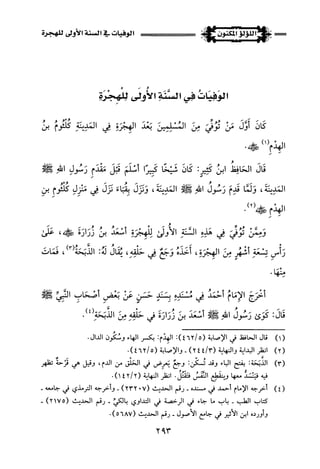 الوفيات في السنة الأولى للهجرة
اللؤلؤ المكنون
الوَفِيَاتُ فِي السَّنَةِ الأُولَى لِلْهِجْرَةِ
كَانَ أَوَّلَ مَنْ تُوُفِّيَ مِنَ المُسْلِمِينَ بَعْدَ الهِجْرَةِ فِي المَدِينَةِ كُلْثُومُ بْنُ
الهِدْمِ(١) ﷺ.
قَالَ الحَافِظُ ابنُ كَثِيرٍ: كَانَ شَيْخًا كَبِيرًا أَسْلَمَ قَبْلَ مَقْدَمِ رَسُولِ اللهِ ﷺ
المَدِينَةَ، وَلَمَّا قَدِمَ رَسُولُ اللهِ ﷺ المَدِينَةَ، وَنَزَلَ بِقُبَاءَ نَزَلَ فِي مَنْزِلِ كُلْثُومِ بنِ
الهِدْمِ ﷺ(٢).
وَمِمَّنْ تُوُفِّيَ فِي هَذِهِ السَّنَةِ الأُولَى لِلْهِجْرَةِ أَسْعَدُ بنُ زُرَارَةَ ﷺ، عَلَى
رَأْسِ تِسْعَةِ أَشْهُرٍ مِنَ الهِجْرَةِ، أَخَذَهُ وَجَعٌ فِي حَلْقِهِ، يُقَالُ لَهُ: الذَّبَحَةُ(٣)، فَمَاتَ
مِنْهَا.
أَخْرَجَ الإِمَامُ أَحْمَدُ فِي مُسْنَدِهِ بِسَنَدٍ حَسَنٍ عَنْ بَعْضِ أَصْحَابِ النَّبِيِّ ﷺ
قَالَ: كَوَى رَسُولُ اللهِ ﷺ أَسْعَدَ بنَ زُرَارَةَ فِي حَلْقِهِ مِنَ الذَّبَحَةِ(٤).
(١) قال الحافظ في الإصابة (٤٦٢/٥): الهِدْم: بكسر الهاء وسُكُون الدال.
(٢) انظر البداية والنهاية (٢٤٤/٣) ـ والإصابة (٤٦٢/٥).
(٣) الذَّبَحَةُ: بفتح الباء وقد تُسكّن: وجعٌ يَعرِض في الحَلْقِ من الدم، وقيل هي قُرْحَةٌ تظهر
فيه فَيَنْسَدُّ معها وينقَطِع النَّفَسُ فَتَقْتُل. انظر النهاية (١٤٢/٢).
(٤) أخرجه الإمام أحمد في مسنده ـ رقم الحديث (٢٣٢٠٧) ـ وأخرجه الترمذي في جامعه ـ
كتاب الطب ـ باب ما جاء في الرخصة في التداوي بالكيِّ ـ رقم الحديث (٢١٧٥) ـ
وأورده ابن الأثير في جامع الأصول ـ رقم الحديث (٥٦٨٧).
٢٩٣